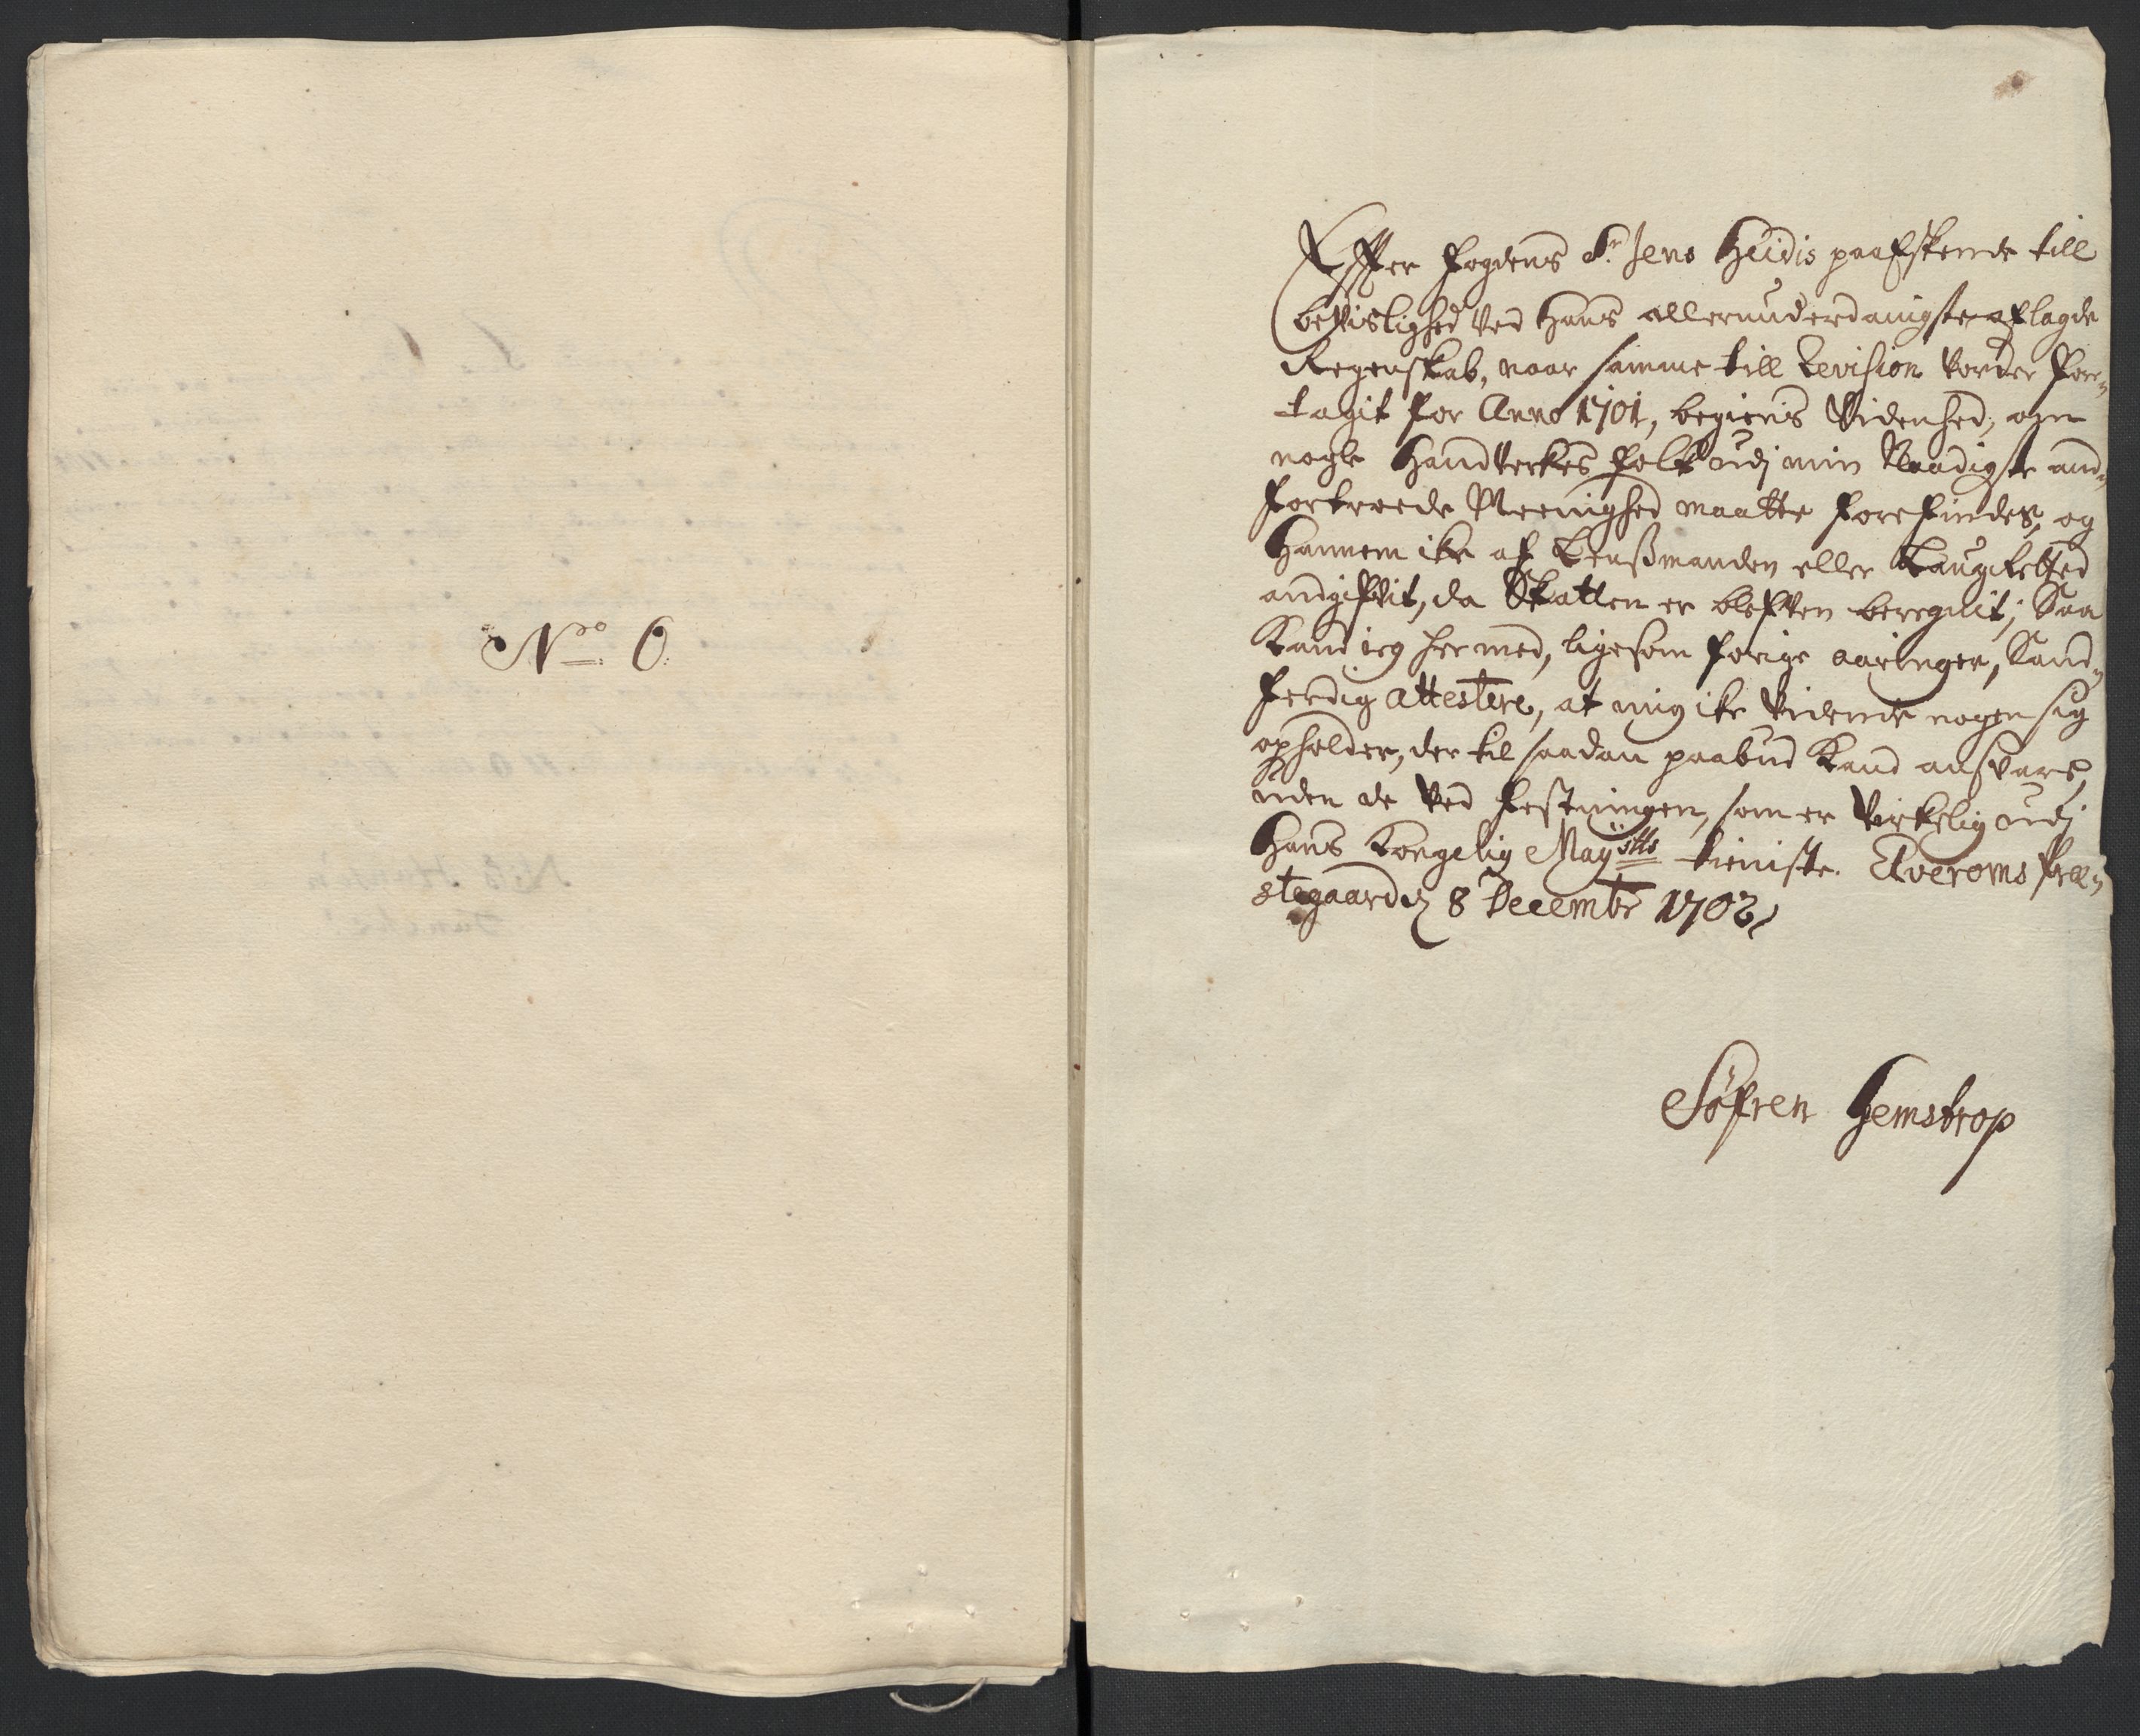 No. O.
Effter fogdens Sr. Jens Hvidis paaeskende till
bevislighed ved hans allerunderdanigste aflagde
Regenskab, naar samme till Revision vorder fore-
tagit for Anno 1701, begieris Videnhed, om
nogle Handverkes folk udj min Naadigste and-
fortroede Meenighed maatte forefindes, og
hannem ike af Lenßmanden eller Laugretted
andgiffvit, da Skatten er bleffven beregnit; Saa
Kand ieg her med, ligesom forige aaringer, Sand-
ferdig attestere, at mig ike vidende nogen sig
opholder, der til saadan paabud Kand ansvare,
uden de ved festningen, som er virkelig udj
Hans Kongelig Mayestts tieniste. Elveroms Præ-
stegaard dn 8 Decembr 1702
Søfren Hemstrop